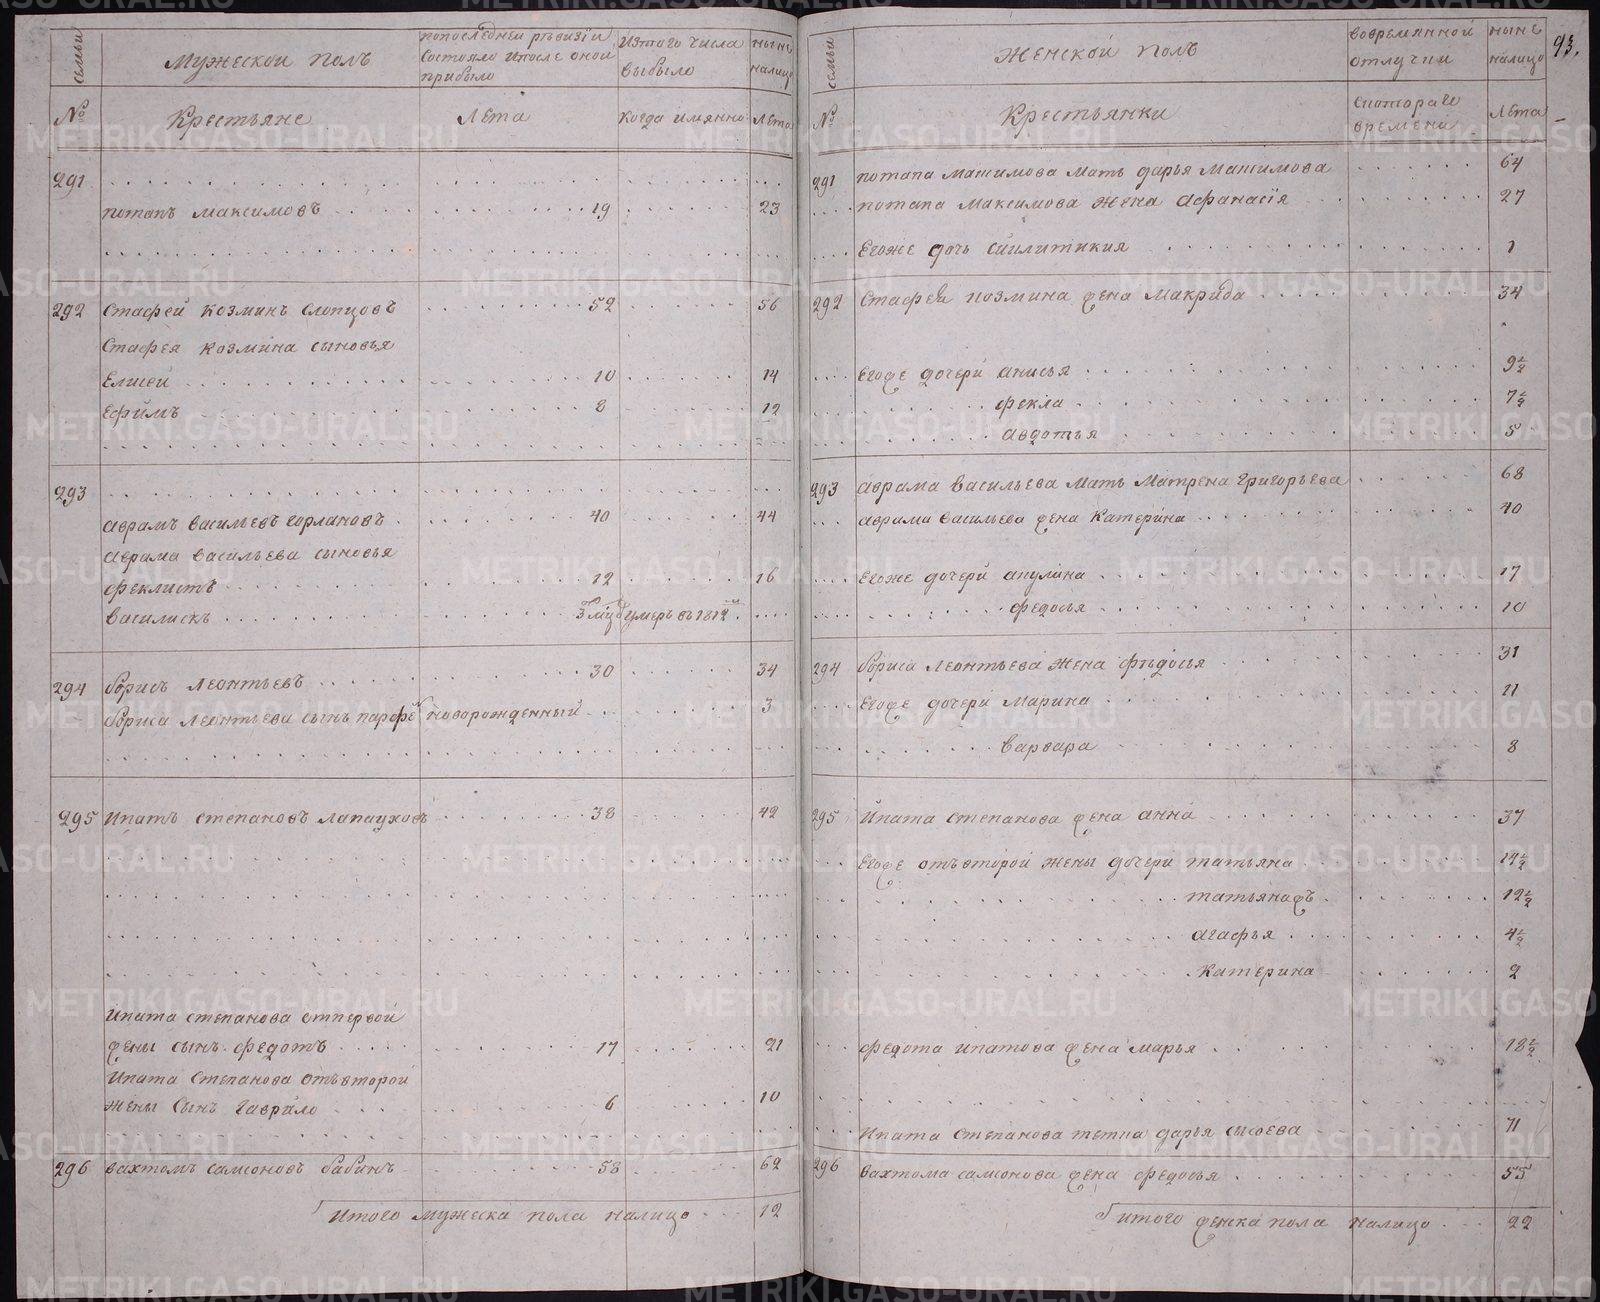 93.
семьи
Мужескои полъ
попоследнеи ревизiи состояло ипосле оной прибыло
Изтого числа выбыло
ныне налицо
№
Крестьяне
Лета
Когда имянно
Лета
291
потапъ Максимовъ 19 23
292 Стафей Козминъ Слопцовъ 52 56
Стафея Козмина сыновья
Елисей 10 14
Ефимъ 8 12
293
аврамъ васильевъ Горлановъ 40 44
аврама васильева сыновья
феклистъ 12 16
василискъ умеръ въ 1812
294 борисъ Леонтьевъ 30 34
бориса Леонтьева сынъ парфей новорожденный 3
295 Ипатъ степановъ лапауховъ 38 42
Ипата степанова отпервои
жены сынъ федотъ 17 21
Ипата Степанова отвторой
жены Сынъ гаврило 6 10
296 вахтомъ самсоновъ бабинъ 58 62
Итого мужеска пола налицо 12
семьи
Женской полъ
вовремянной отлучки
ныне налицо
№
Крестьянки
скотораго времени
Лета
291 потапа макимова мать дарья Макимова 64
потапа Максимова жена Афанасiя 27
Егоже дочь 1
292 Стафея козмина жена Макрида 34
Егоже дочери анисья 9½
фекла 7½
авдотья 5
293 аврама васильева мать Матрена Григорьева 68
аврама васильева жена Катерина 40
Егоже дочери акулина 17
федосья 10
294 бориса Леонтьева жена федосья 31
Егоже дочери Марина 11
варвара 8
295 Ипата степанова жена анна 37
Егоже отвторой жены дочери татьяна 14½
татьянажъ 12½
агафья 4½
Катерина 2
федота ипатова жена марья 18½
Ипата Степанова тетка дарья сысоева 71
296 вахтома самсонова жена федосья 55
итого женска пола налицо 22
METRIKI.GASO-URAL.RU